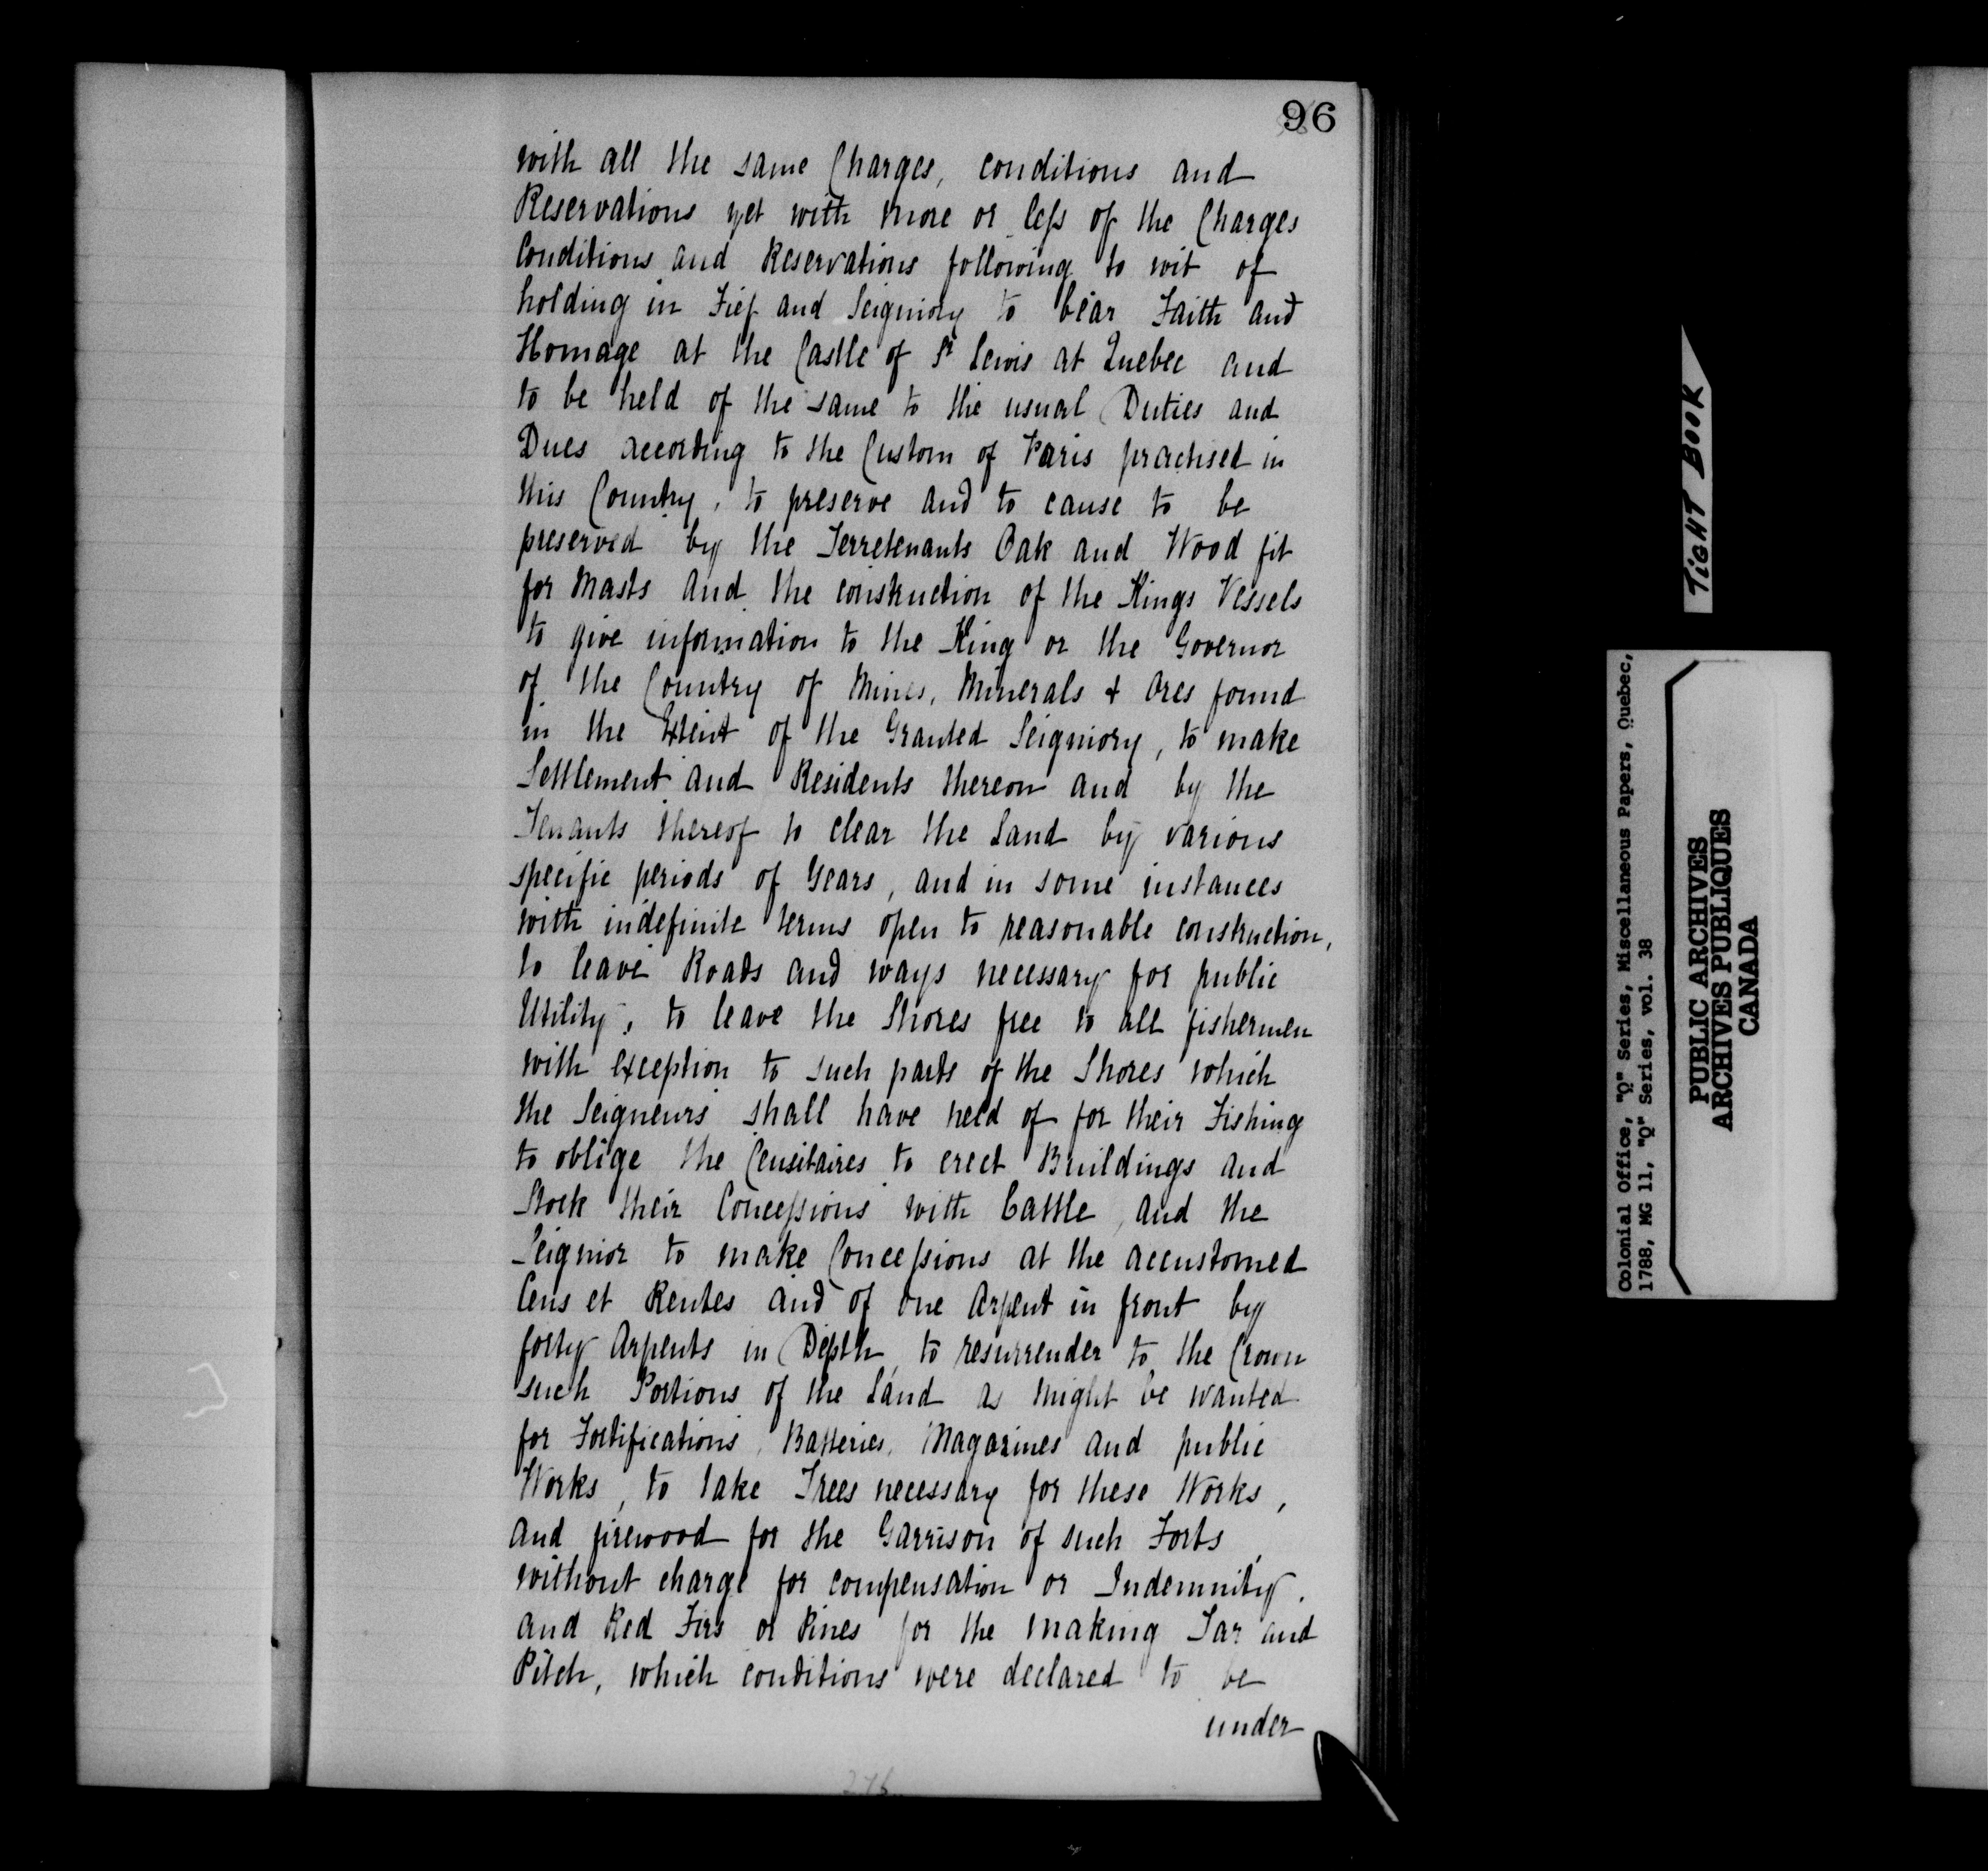 96
with all the same Charges, conditions and
Reservations yet with more or less of the Charges
Conditions and Reservations following to wit of
holding in Fief and Seigniory to bear Faith and
Homage at the Castle of St Lewis at Quebec and
to be held of the same to the usual Duties and
Dues according to the Custom of Paris practised in
this Country, to preserve and to cause to be
preserved by the Terretenants Oak and Wood fit
for Masts and the construction of the Kings Vessels
to give information to the King or the Governor
of the Country of Mines, Minerals & Ores found
in the Extent of the Granted Seigniory, to make
Settlement and Residents thereon and by the
Tenants thereof to clear the Land by various
specific periods of Years, and in some instances
with indefinite terms open to reasonable construction,
to leave Roads and ways necessary for public
Utility, to leave the Shores free to all fishermen
with exception to such parts of the Shores which
the Seigneurs shall have need of for their Fishing
to oblige the Censitaires to erect Buildings and
Stock their Concessions with Cattle, and the
Seignior to make Concessions at the accustomed
Cens et Rentes and of one Arpent in front by
forty Arpents in Depth, to resurrender to the Crown
such Portions of the Land as might be wanted
for Fortifications, Batteries, Magazines and public
Works, to take Trees necessary for these Works,
and firewood for the Garrison of such Forts,
without charge for compensation or Indemnity.
and Red Firs or Pines for the making Tar and
Pitch, which conditions were declared to be
under
TIGHT BOOK
Colonial Office, "Q" Series, Miscellaneous Papers, Quebec,
1788, MG 11, "Q" Series, vol. 38
PUBLIC ARCHIVES
ARCHIVES PUBLIQUES
CANADA